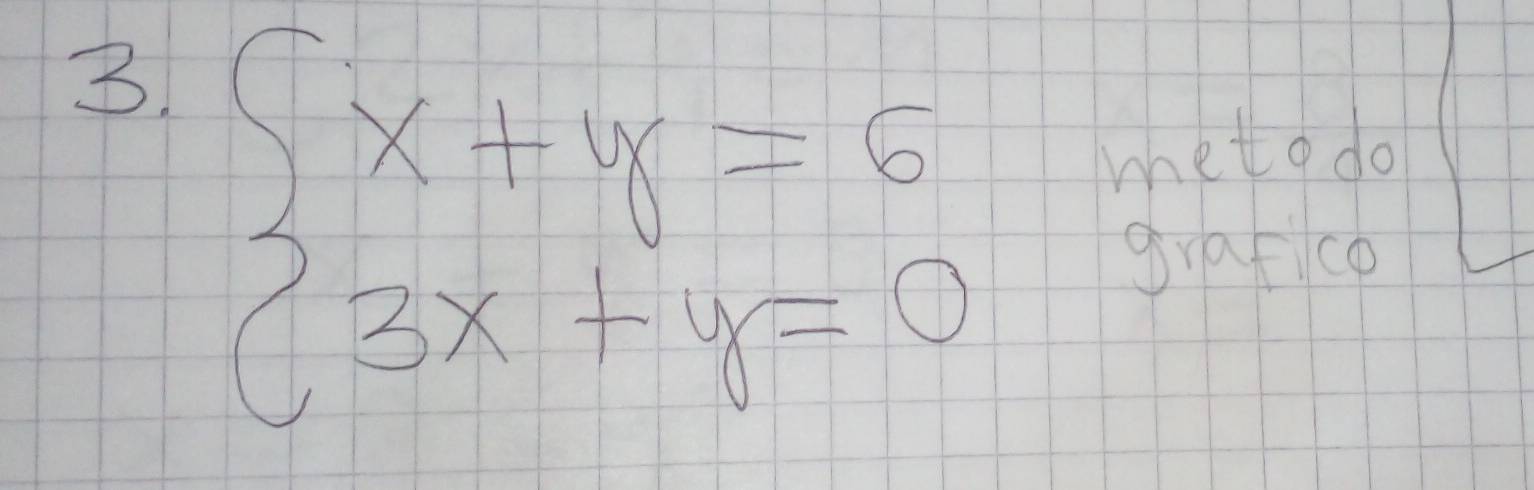 3. { x + y = 6
3x + y = 0
metodo
grafico